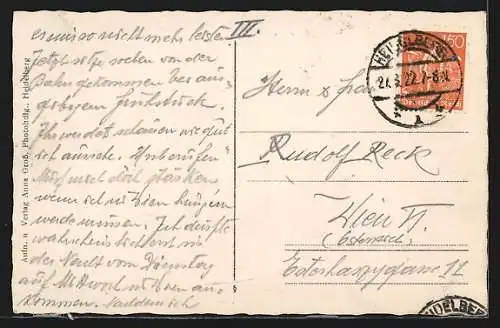 es mir so nicht mehr leisten
III.
Jetzt sitze soeben von der
Bahn gekommen bei aus-
gebogem Frühstück.
Ihr werdet schauen wie gut
ich aussehe. Unberufen
Muss mich doch stärken
wenn ich in Wien hungern
werde müssen. Ich dürfte
wahrscheinlich erst in
der Nacht vom Dienstag
auf Mittwoch in Wien an-
kommen.
Aufn. u Verlag Anna Groß, Photohdlg., Heidelberg
HEIDELBERG
27.3.22.7-8.N.
150
Herrn & Frau
Rudolf Reck
Wien VI.
Österreich
Esterhazygasse 11
HEIDELBE